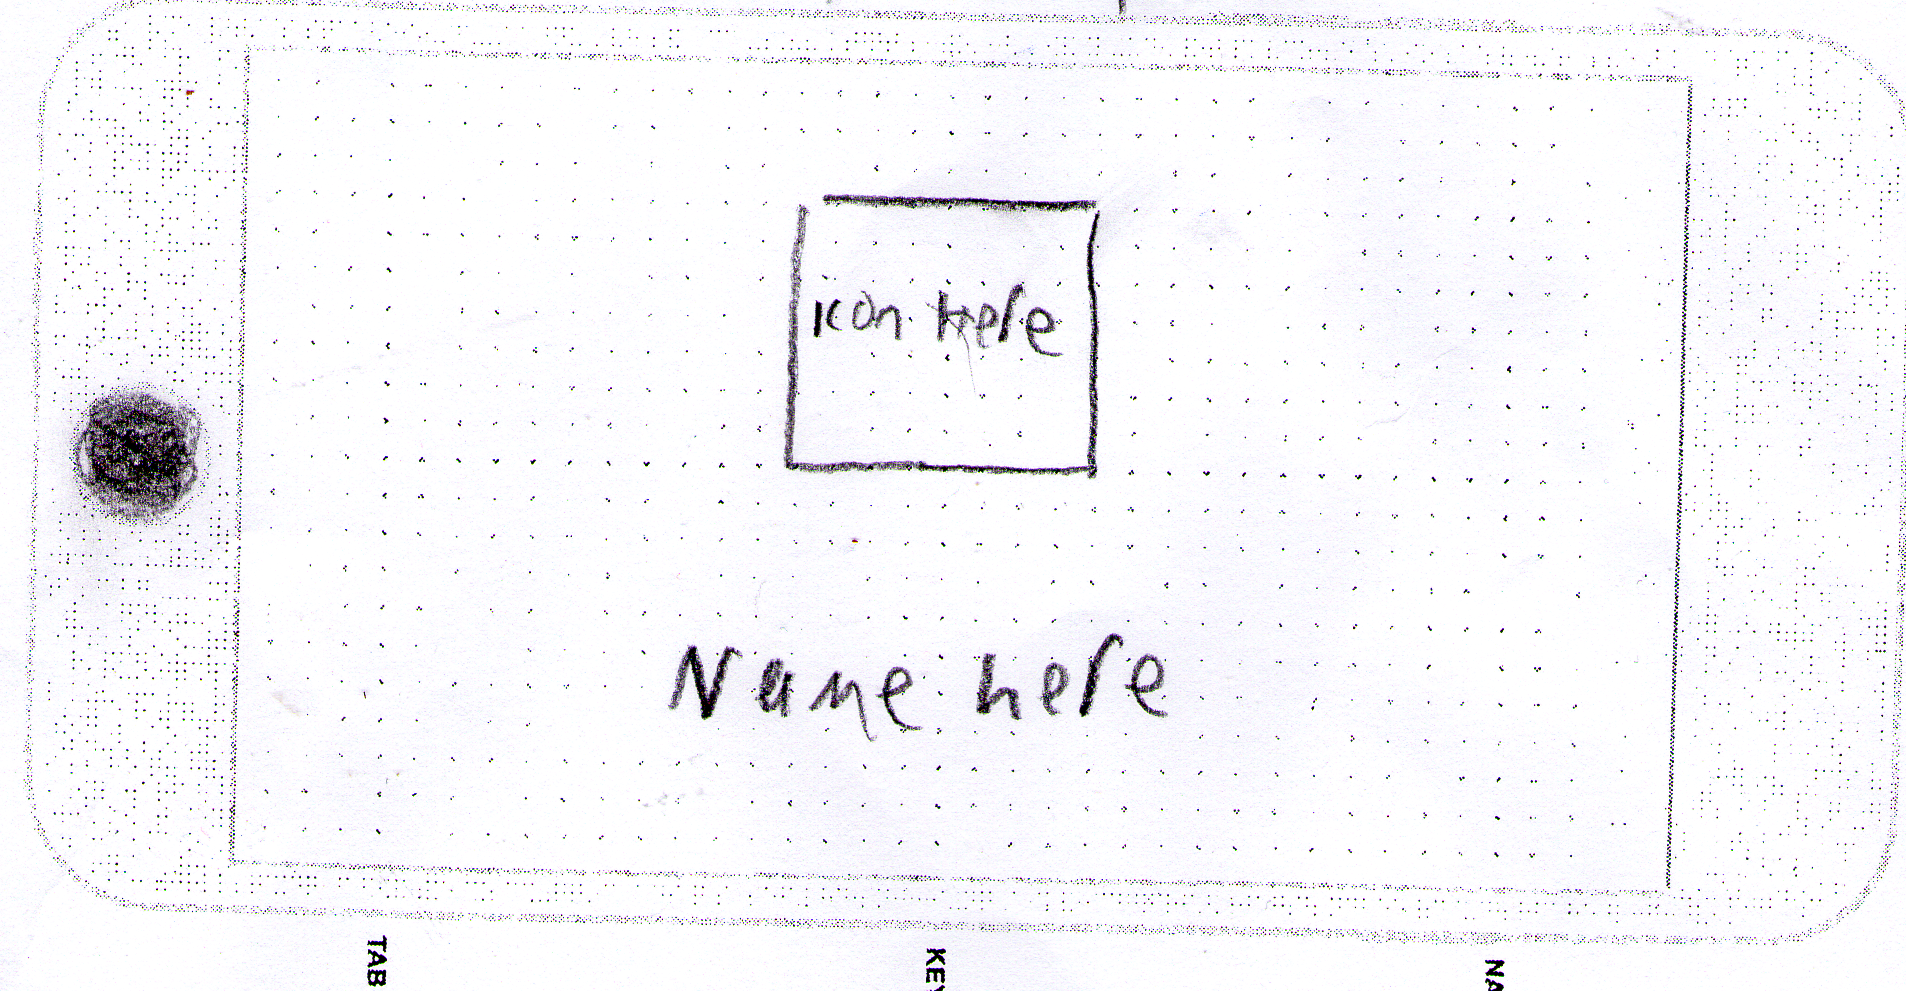 icon here
Name here
TAB
KEY
NA